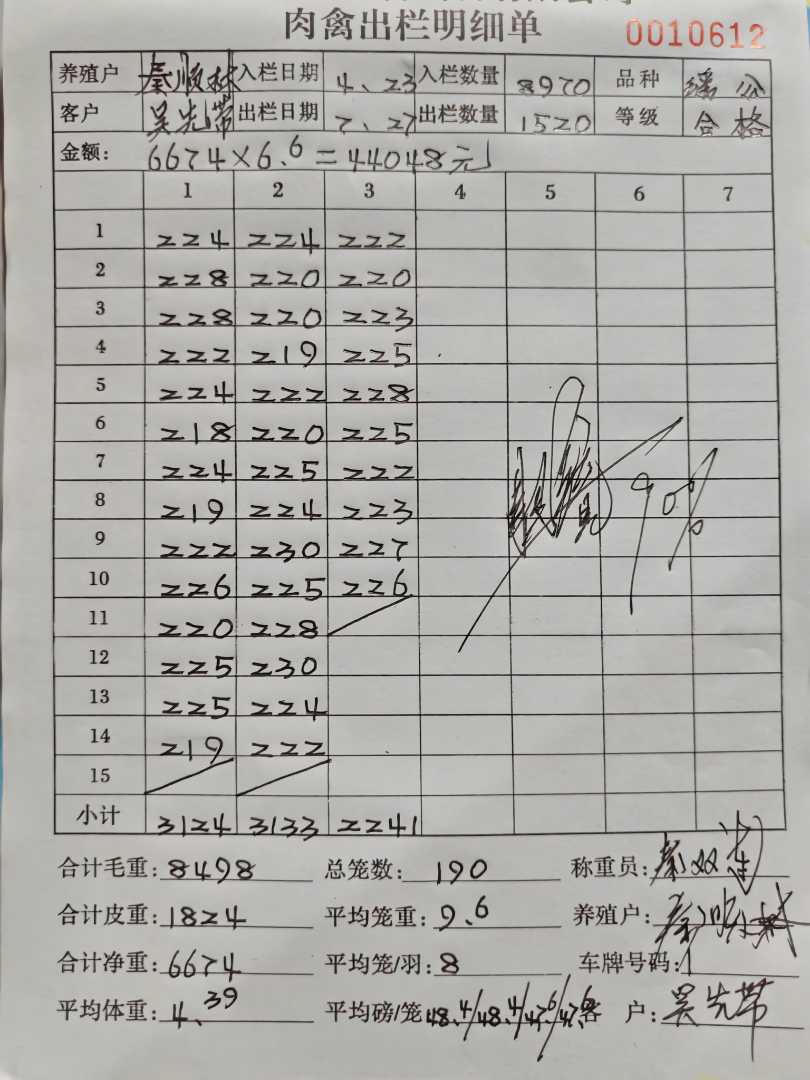 肉禽出栏明细单 0010612
养殖户 秦顺林 入栏日期 4、23 入栏数量 8970 品种 瑶公
客户 吴先带 出栏日期 7、27 出栏数量 1520 等级 合格
金额: 6674×6.6=44048元
1 2 3 4 5 6 7
1 224 224 222
2 228 220 220
3 228 220 223
4 222 219 225
5 224 222 228
6 218 220 225
7 224 225 222
8 219 224 223
9 222 230 227
10 226 225 226
11 220 228
12 225 230
13 225 224
14 219 222
15
90%
小计 3124 3133 2241
合计毛重: 8498 总笼数: 190 称重员: 秦双
合计皮重: 1824 平均笼重: 9.6 养殖户: 秦顺林
合计净重: 6674 平均笼/羽: 8 车牌号码:
平均体重: 4.39 平均磅/笼 48.4/48.4/47.6/47.6 客户: 吴先带